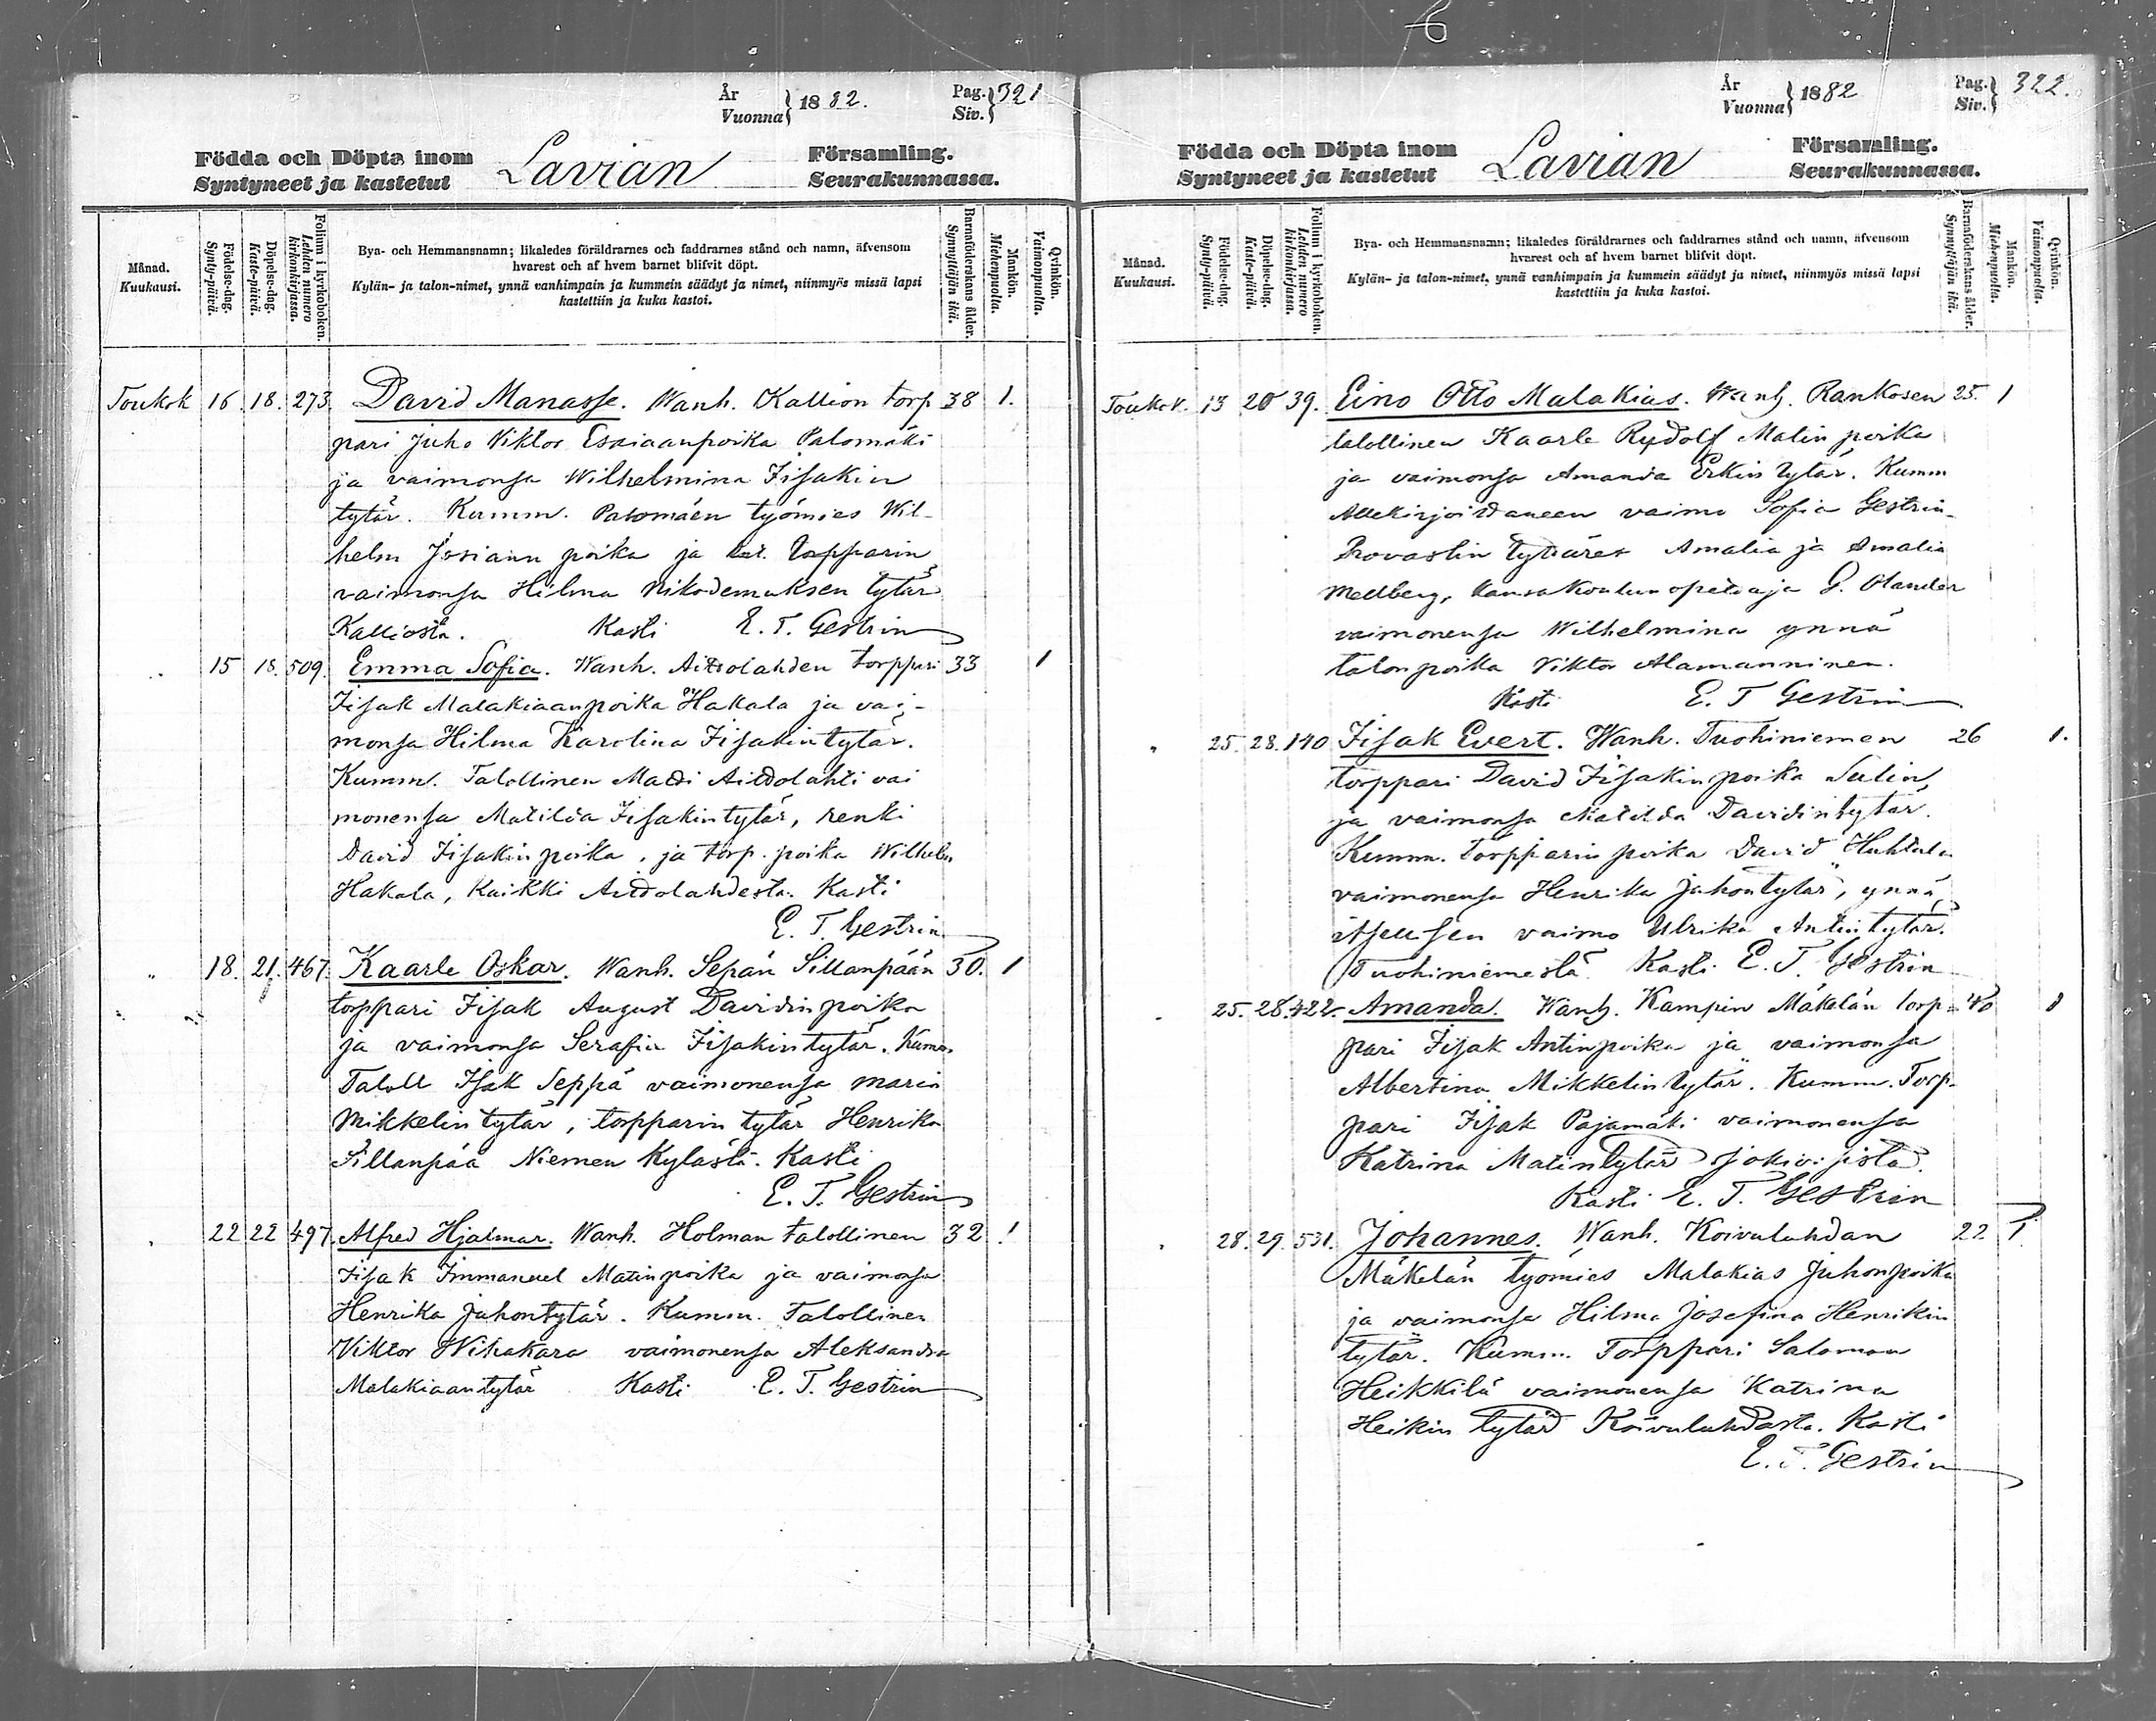 År
Vuonna 1882.
Pag.
Siv. 321
Födda och Döpta inom
Syntyneet ja kastetut
Lavian
Församling.
Seurakunnassa.
Månad.
Kuukausi.
Födelse-dag.
Synty-päivä.
Döpelse-dag.
Kaste-päivä.
Folium i kyrkoboken.
Lehden numero kirkonkirjassa.
Bya- och Hemmansnamn; likaledes föräldrarnes och faddrarnes stånd och namn, äfvensom
hvarest och af hvem barnet blifvit döpt.
Kylän- ja talon-nimet, ynnä vanhimpain ja kummein säädyt ja nimet, niinmyös missä lapsi
kastettiin ja kuka kastoi.
Barnaföderskans ålder.
Synnyttäjän ikä.
Mankön.
Miehenpuolta.
Qvinkön.
Vaimonpuolta.
Toukok 16. 18. 273. David Manasse. Wanh. Kallion torp 38 1.
pari Juho Viktor Esaiaanpoika Palomäki
ja vaimonsa Wilhelmina Iisakin
tytär. Kumm. Palomäen työmies Wil-
helm poika ja torpparin
vaimonsa Hilma Nikodemuksen tytär
Kalliosta. Kasti E. T. Gestrin
15 18. 509. Emma Sofia. Wanh. Aittolahden torppari 33 1
Iisak Malakiaanpoika Hakala ja vai-
monsa Hilma Karolina Iisakintytär.
Kumm. Talollinen Matti Aittolahti vai
monensa Matilda Iisakintytär, renki
David Iisakinpoika, ja torp. poika Wilhelm
Hakala, Kaikki Aittolahdesta. Kasti
E. T. Gestrin
18. 21. 467. Kaarle Oskar. Wanh. Sepän Sillanpään 30. 1
torppari Iisak August Davidinpoika
ja vaimonsa Serafia Iisakintytär. Kumm.
Taloll Isak Seppä vaimonensa Maria
Mikkelintytär, torpparin tytär Henrika
Sillanpää Niemen Kylästä. Kasti
E. T. Gestrin
22 22 497. Alfred Hjalmar. Wanh. Holman talollinen 32 1
Iisak Immanuel Matinpoika ja vaimonsa
Henrika Juhontytär. Kumm. Talollinen
Viktor Wihakara vaimonensa Aleksandra
Malakiaantytär Kasti E. T. Gestrin
År
Vuonna 1882
Pag.
Siv. 322.
Födda och Döpta inom
Syntyneet ja kastetut
Lavian
Församling.
Seurakunnassa.
Månad.
Kuukausi.
Födelse-dag.
Synty-päivä.
Döpelse-dag.
Kaste-päivä.
Folium i kyrkoboken.
Lehden numero kirkonkirjassa.
Bya- och Hemmansnamn; likaledes föräldrarnes och faddrarnes stånd och namn, äfvensom
hvarest och af hvem barnet blifvit döpt.
Kylän- ja talon-nimet, ynnä vanhimpain ja kummein säädyt ja nimet, niinmyös missä lapsi
kastettiin ja kuka kastoi.
Barnaföderskans ålder.
Synnyttäjän ikä.
Mankön.
Miehenpuolta.
Qvinkön.
Vaimonpuolta.
Toukok. 13 20 39. Eino Otto Malakias. Wanh. Rankosen 25. 1
talollinen Kaarle Rudolf Matinpoika
ja vaimonsa Amanda Erkintytär. Kumm
Allekirjoittaneen vaimo Sofia Gestrin
Provastin tyttäret Amalia ja Amalia
Mellberg, Kansakoulun opettaja G. Olander
vaimonensa Wilhelmina ynnä
talonpoika Viktor Alamanninen.
Kasti E. T Gestrin
25. 28. 140 Iisak Evert. Wanh. Tuohiniemen 26 1.
torppari David Iisakinpoika Sulin
ja vaimonsa Matilda Davidintytär.
Kumm. Torpparin poika David Huhtala
vaimonensa Henrika Juhontytär, ynnä
itsellisen vaimo Ulrika Antintytär.
Tuohiniemestä. Kasti E. T. Gestrin
25. 28. 422. Amanda. Wanh. Kampin Mäkelän torp- 40 1
pari Iisak Antinpoika ja vaimonsa
Albertina Mikkelintytär. Kumm. Torp-
pari Iisak Pajamäki vaimonensa
Katrina Matintytär
Kasti E. T. Gestrin
28. 29. 531. Johannes. Wanh. Koivuluhdan 22 1.
Mäkelän työmies Malakias Juhonpoika
ja vaimonsa Hilma Josefina Henrikin
tytär. Kumm. Torppari Saloman
Heikkilä vaimonensa Katrina
Heikin tytär Koivuluhdasta. Kasti
E. T. Gestrin